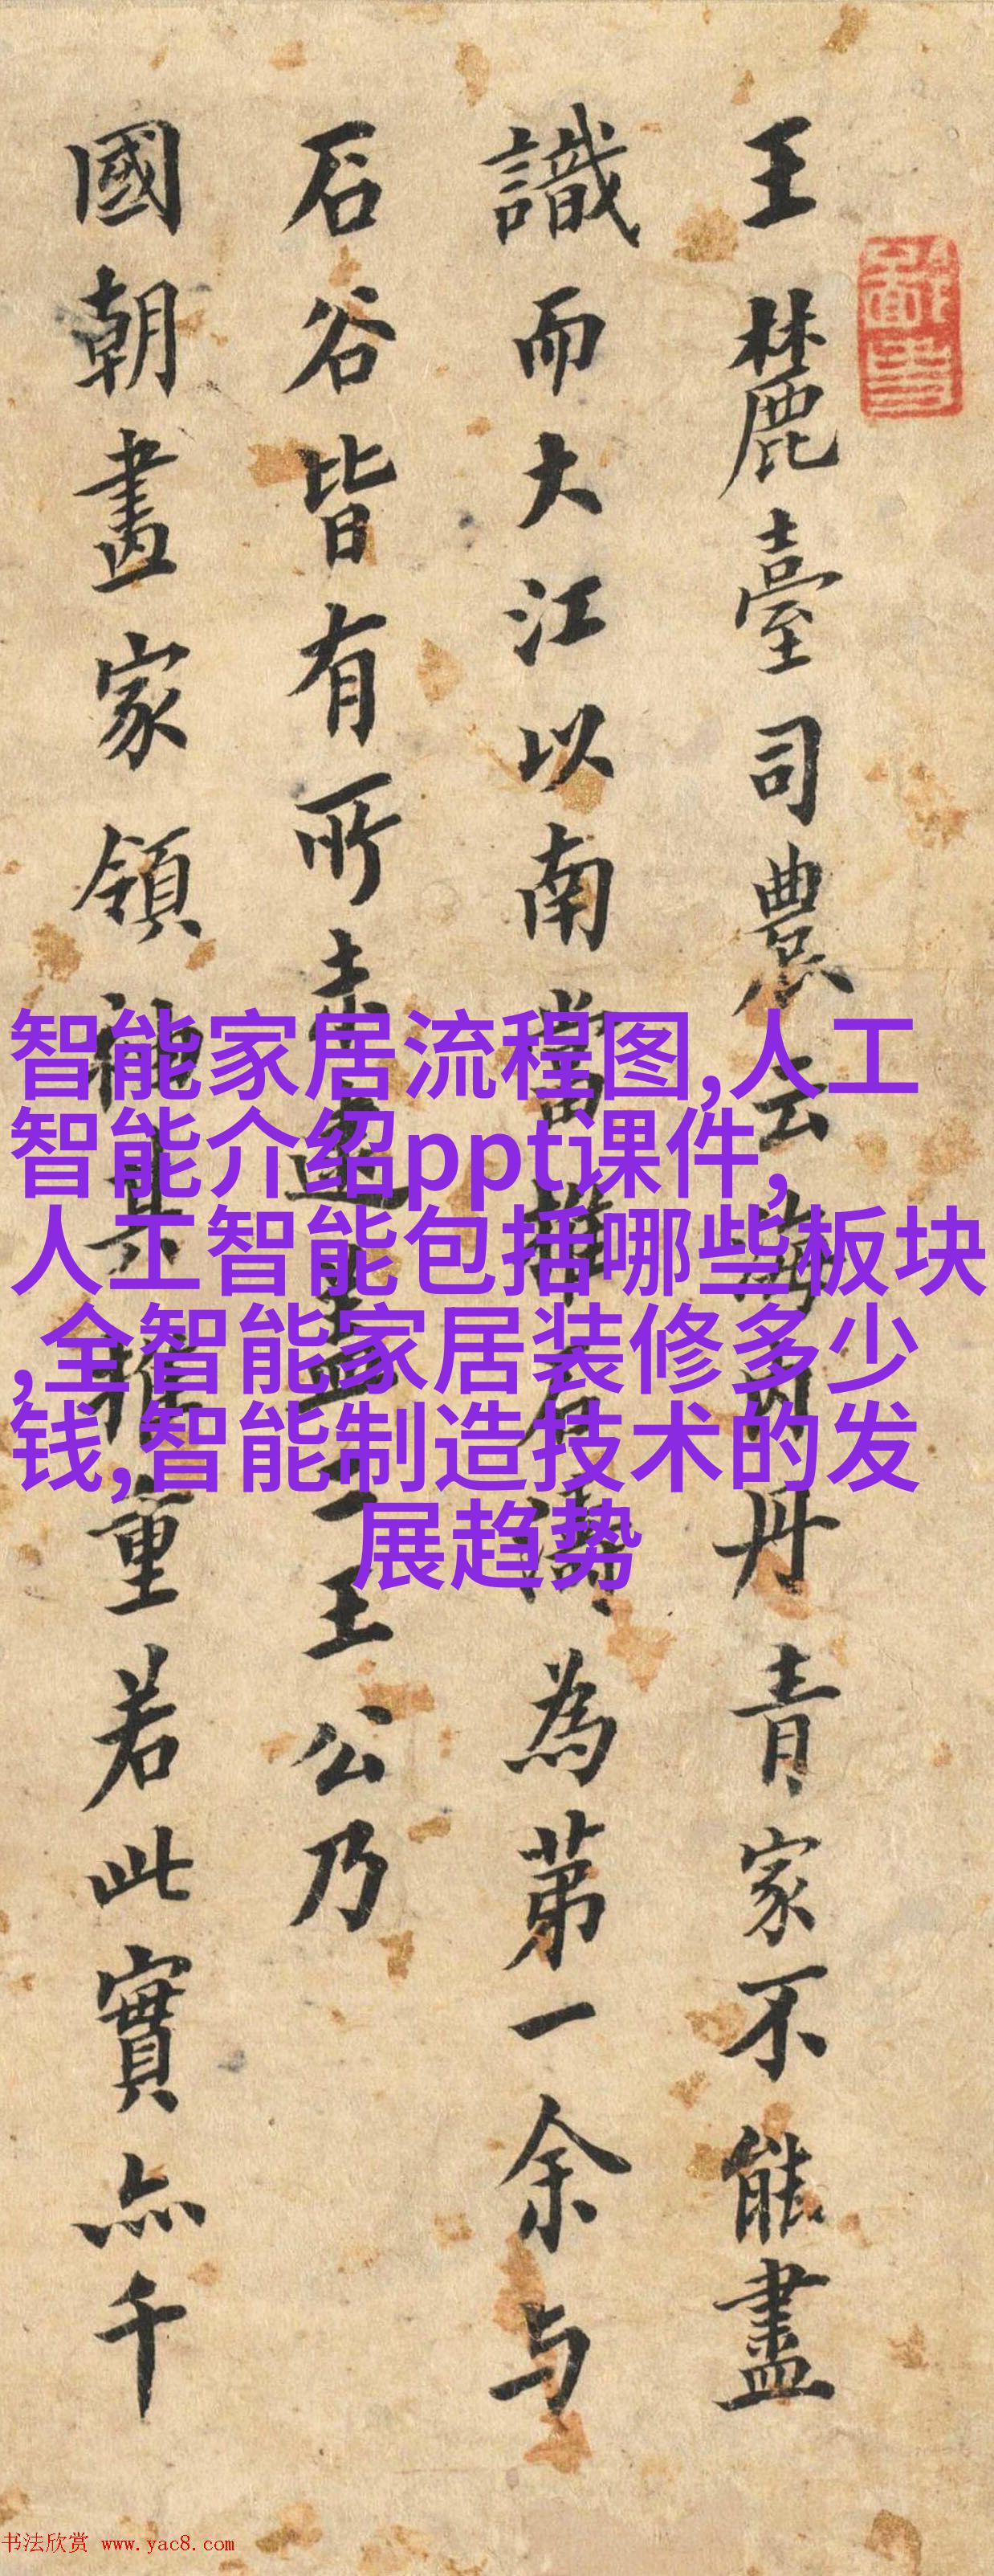 王麓臺司農云海内丹青家不能盡
識而大江以南當推石濤為第一余与
石谷皆有所未逮盖二王公乃
國朝畫家領袖其推重若此實亦千
智能家居流程图,人工
智能介绍ppt课件,
人工智能包括哪些板块
,全智能家居装修多少
钱,智能制造技术的发
展趋势
书法欣赏 www.yac8.com